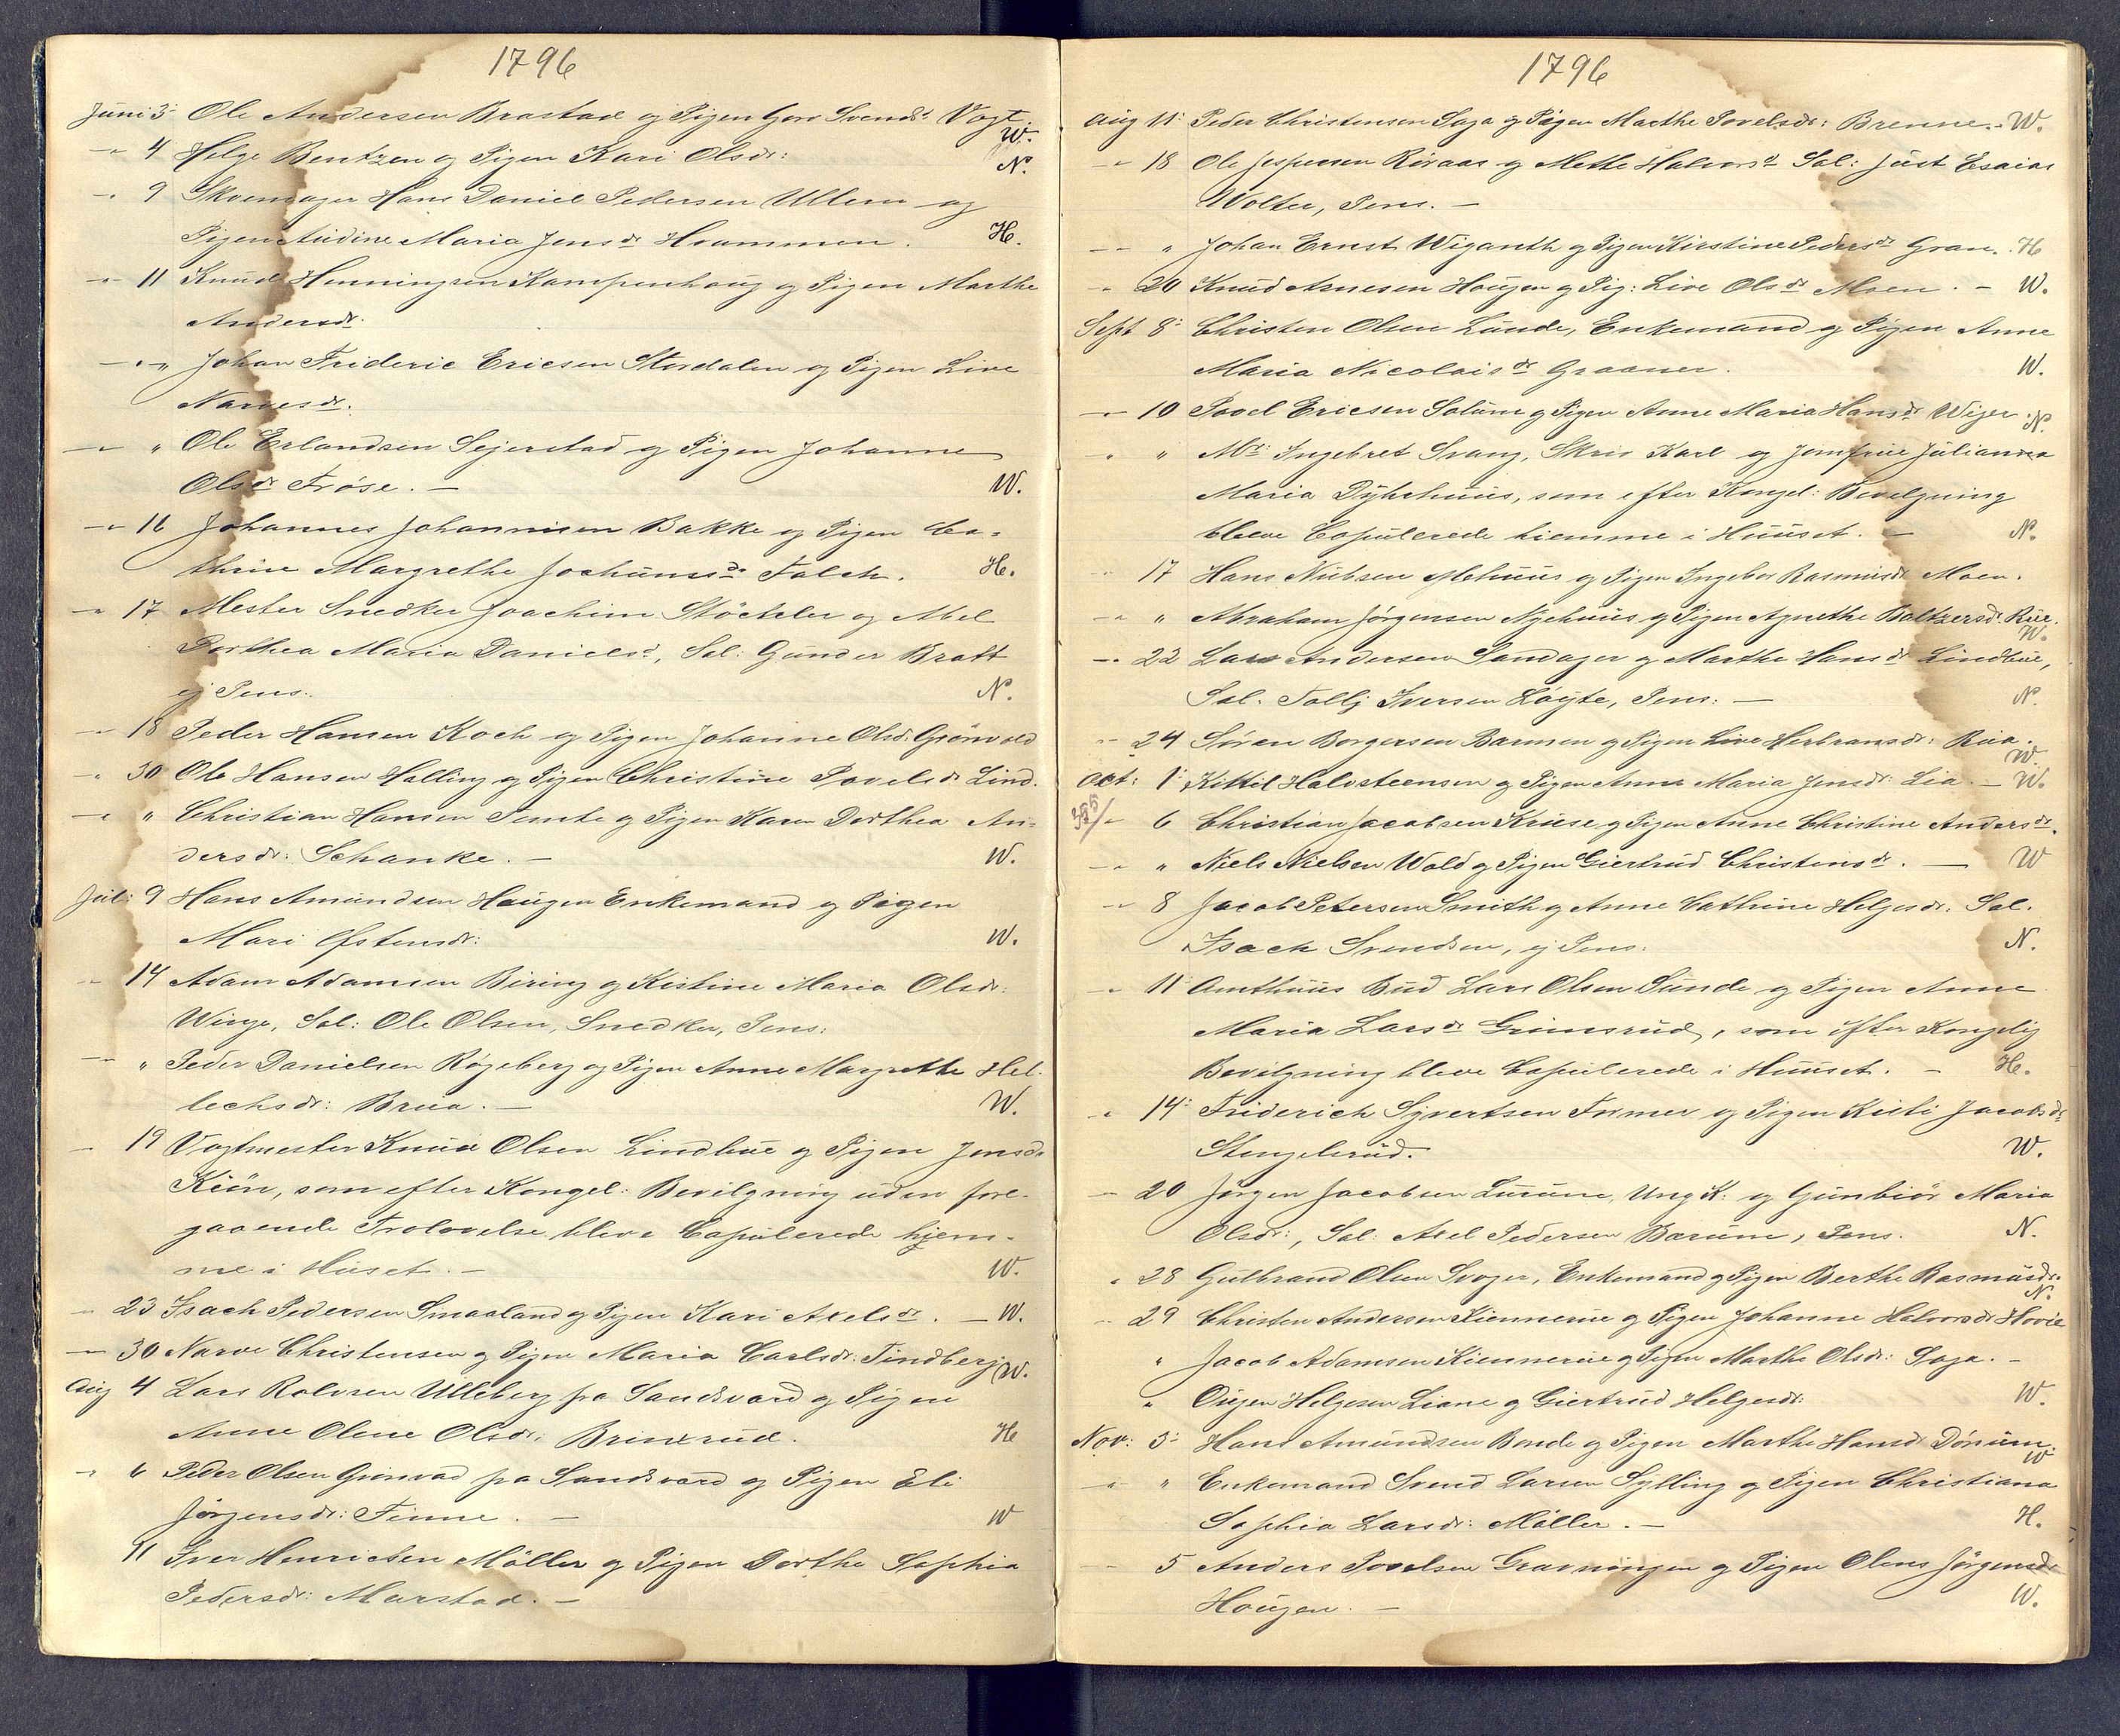 1796
Juni 3: Ole Andersen Brastad og Pigen Goro Svends: Vogt.
W.
-"- 4 Helge Bentzen og Pigen Kari Olsdr: N.
-"- 9 Skomager Hans Daniel Pedersen Ullern og
Pigen Andine Maria Jensdr Hvammen. H.
-"- 11 Knud Henningsen Kampenhoug og Pigen Marthe
Andersdr.
-"- " Johan Frideric Ericsen Stordalen og Pigen Live
Narvesdr.
-"- " Ole Erlandsen Sejerstad og Pigen Johanne
Olsdr Frøse. - W.
-"- 16 Johannes Johannisen Bakke og Pigen Ca=
thrine Margrethe Jochumsdr Falch. H.
-"- 17 Mester Snedker Joachim Stöckler og Abel
Dorthea Maria Danielsd, Sal: Gunder Bratt
ej Pens: N.
-"- 18 Peder Hansen Koch og Pigen Johanne Olsdr: Grönvold
-"- 30 Ole Hansen Halling og Pigen Christine Povelsdr Lind.
-"- " Christian Hansen Semte og Pigen Karen Dorthea An=
dersdr: Schanke. - W.
Juli: 9 Hans Amundsen Haugen Enkemand og Pigen
Mari Østensdr: W.
-"- 14 Adam Adamsen Biring og Kistine Maria Olsdr:
Winge, Sal: Ole Olsen, Snedker, Pens:
-"- " Peder Danielsen Røgeberg og Pigen Anne Margrethe Hel-
lechsdr: Brua. - W.
- 19 Vogtmester Knud Olsen Lindbue og Pigen Jensdr
Kiön, som efter Kongel: Bevilgning uden fore-
gaaende Trolovelse bleve Copulerede hjem-
me i Huset. - W.
-"- 23 Isach Pedersen Smaaland og Pigen Kari Axelsdr. - W.
-"- 30 Narve Christensen og Pigen Maria Carlsdr: Tindberg W.
Aug 4 Lars Rolvsen Ulleberg fra Sandsvard og Pigen
Anne Olene Olsdr: Brinxrud. H
-"- 6 Peder Olsen Grönvad fra Sandsvard og Pigen Eli
Jörgensdr: Finne. - W
11 Iver Henricsen Möller og Pigen Dorthe Sophia
Pedersdr: Marstad. -
1796
Aug 11: Peder Christensen Saga og Pigen Marthe Povelsdr: Brenne. - W.
-"- 18 Ole Jespersen Röraas og Mette Halvorsdr Sal: Just Esaias
Wolter, Pens. -
-"- " Johan Ernst Wiganth og Pigen Kirstine Pedersdr Gran. H
-"- 20 Knud Arnesen Hougen og Pig: Live Olsdr Moen. - W.
Sept 8: Christen Olsen Lunde, Enkemand og Pigen Anne
Maria Nicolaisdr Graaner. W.
-"- 10 Povel Ericsen Solum og Pigen Anne Maria Hansdr Wiger. N.
" " Mr: Ingebret Svang, Skriv Karl og Jomfrue Julianna
Maria Dyhrhuus, som efter Kongel: Bevilgning
bleve Copulerede hiemme i Huuset. - N.
" 17 Hans Nielsen Mehuus og Pigen Ingebor Rasmusdr Moen.
-"- " Abraham Jörgensen Nyehuus og Pigen Agnethe Baltzersdr. Rue.
W.
-"- 22 Lars Andersen Sandager og Marthe Hansdr Lindbue,
Sal. Tollj Iversen Löyte, Pens: - N.
-"- 24 Sören Borgersen Barmen og Pigen Live Herbransdr: Rua.
W.
Oct: 1: Kittil Halvsteensen og Pigen Anne Maria Jensdr: Lia. - W.
355/ -"- 6 Christian Jacobsen Kruse og Pigen Anne Christine Andersdr.
-"- " Niels Nielsen Wold og Pigen Giertrud Christensdr. - W
-"- 8 Jacob Petersen Smith og Anne Cathrine Helgesdr. Sal.
Isach Svendsen, ej Pens: N.
-"- 11 Amthuus Bud Lars Olsen Sunde og Pigen Anne
Maria Larsdr Grimsrud, som efter Kongelig
Bevilgning bleve Copulerede i Huuset. - H.
-"- 14: Friderich Syvertsen Former og Pigen Kisti Jacobsdr
Stengelsrud. W.
- 20 Jörgen Jacobsen Luume, Ung K: og Gunbiör Maria
Olsdr:, Sal: Axel Pedersen Bærum, Pens. N.
" 28 Gulbrand Olsen Svager, Enkemand og Pigen Berthe Rasmusdr.
N.
-"- 29 Christen Andersen Kiennerue og Pigen Johanne Halvorsdr Hovie
" Jacob Adamsen Kiennerue og Pigen Marthe Olsdr: Saga. -
" Ougen Helgesen Liane og Giertrud Helgesdr: W.
Nov: 3: Hans Amundsen Bonde og Pigen Marthe Hansdr Dönum.
W
-"- " Enkemand Svend Larsen Sylling og Pigen Christiana
Sophia Larsdr: Möller. - H.
- 5 Anders Povelsen Gravningen og Pigen Olene Jörgensdr
Hougen. - W.